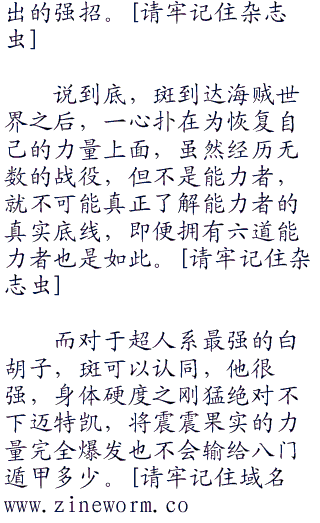 出的强招。[请牢记住杂志
虫]
说到底，斑到达海贼世
界之后，一心扑在为恢复自
己的力量上面，虽然经历无
数的战役，但不是能力者，
就不可能真正了解能力者的
真实底线，即便拥有六道能
力者也是如此。[请牢记住杂
志虫]
而对于超人系最强的白
胡子，斑可以认同，他很
强，身体硬度之刚猛绝对不
下迈特凯，将震震果实的力
量完全爆发也不会输给八门
遁甲多少。[请牢记住域名
www.zineworm.co